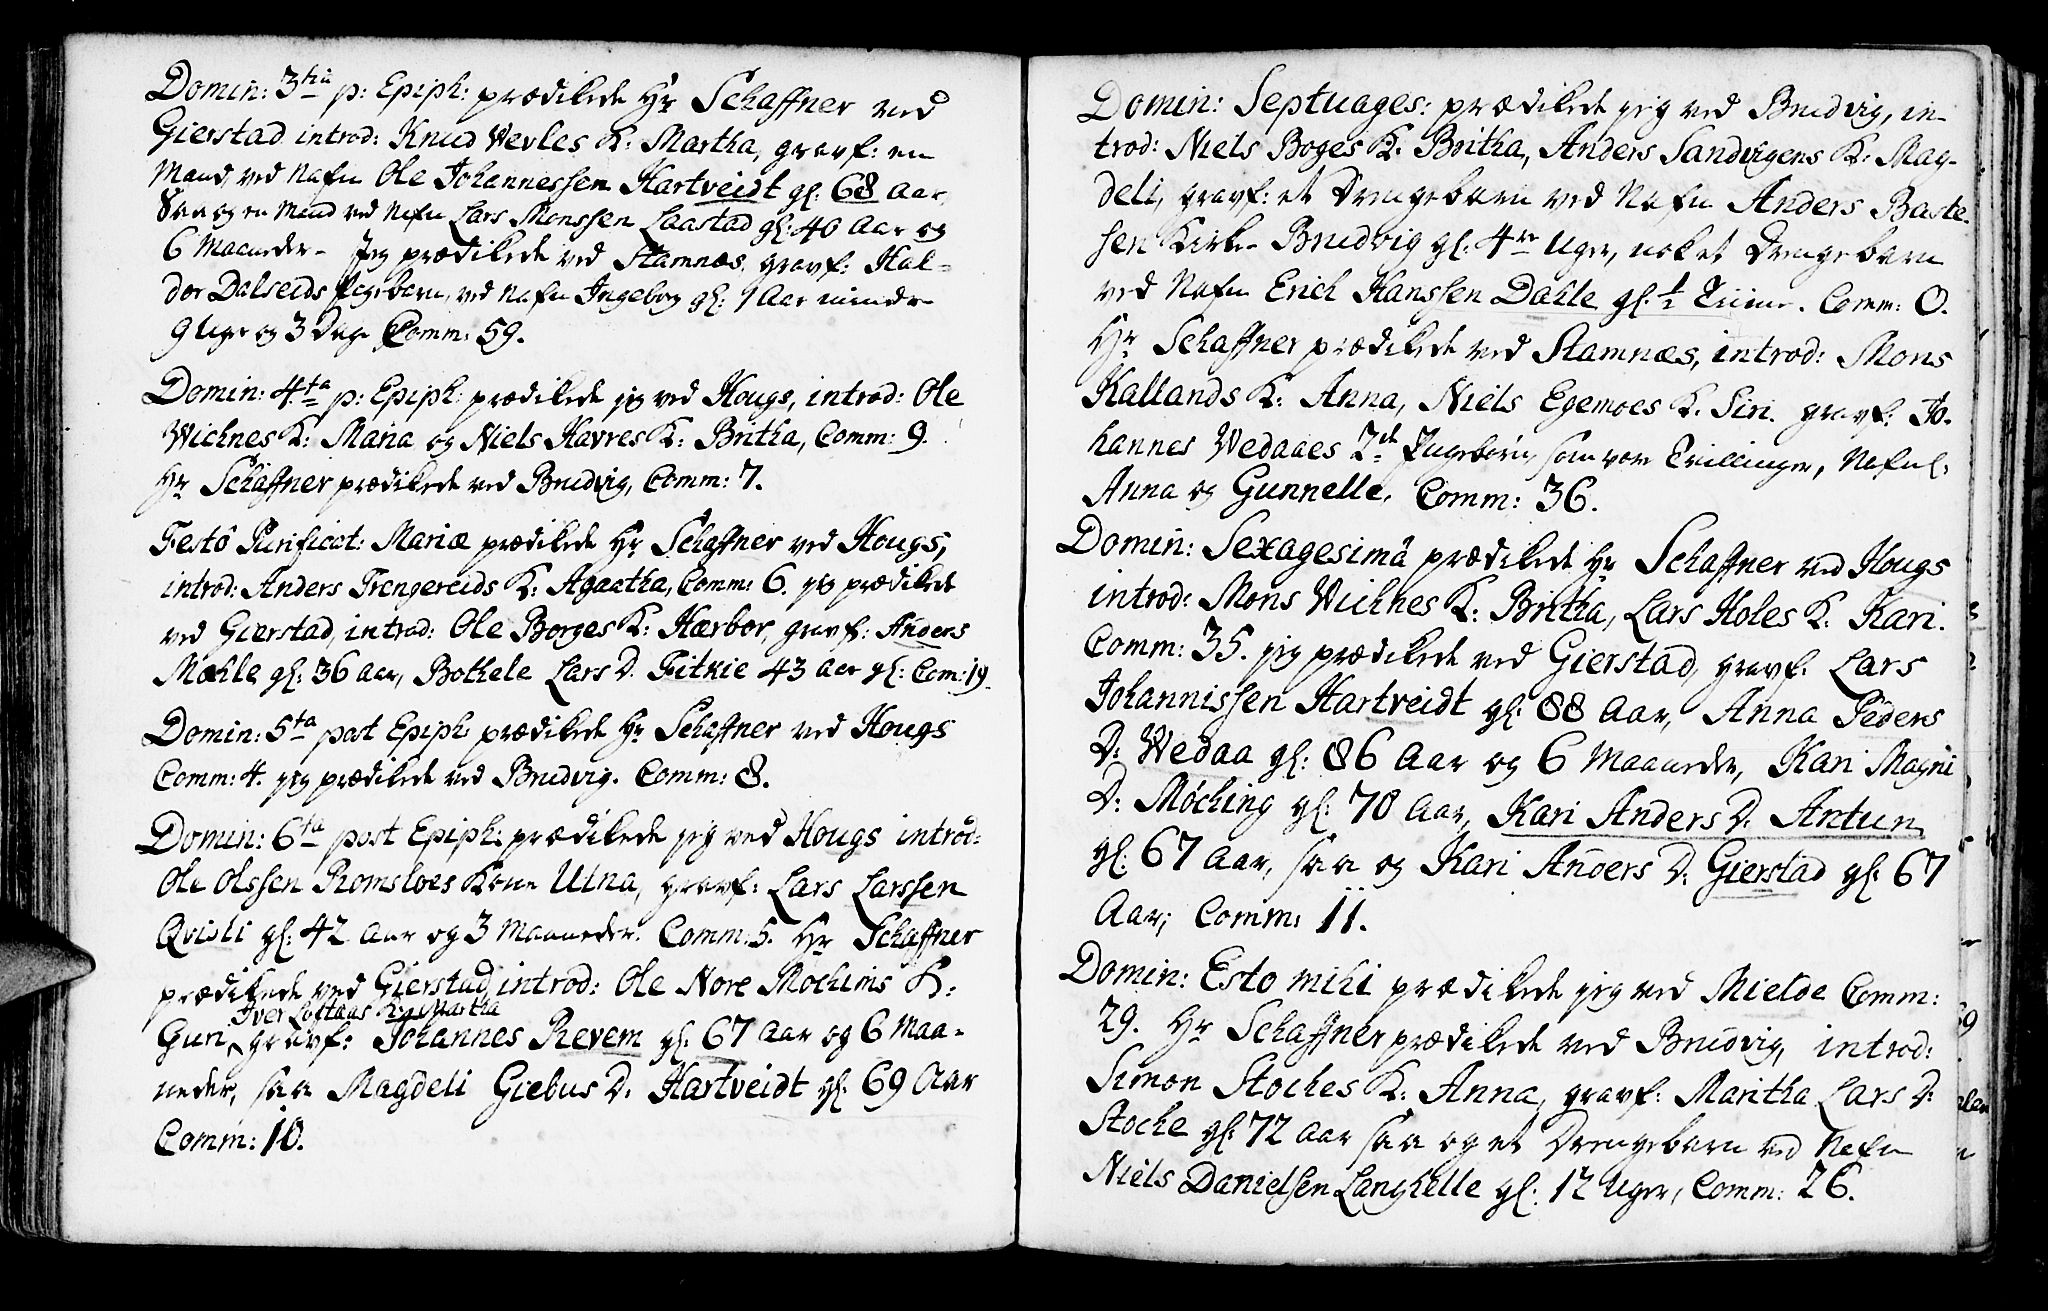 Domin: 3tia p: Epiph: prædikede Hr Schaffner ved
Gierstad introd: Knud Wevles K: Martha, gravf: en
Mand ved Nafn Ole Johannessen Hartveidt gl: 68 Aar,
Saa og en Mand ved Nafn Lars Monssen Laastad gl: 40 Aar og
6 Maaneder - Jeg prædikede ved Stamnæs, gravf: Hal-
dor Dalseids Pigebarn, ved Nafn Ingebor gl: 1 Aar mindr
9 Uger og 3 Dage Comm: 59.
Domin: 4ta p: Epiph: prædikede jeg ved Hougs, introd: Ole
Wichnes K: Maria og Niels Havres K: Britha, Comm: 9.
Hr Schaffner prædikede ved Brudvig, Comm: 7.
Festo Purificat: Mariæ prædikede Hr Schaffner ved Hougs,
introd: Anders Trengereids K: Agaatha, Comm: 6. jeg prædikede
ved Gierstad, introd: Ole Borges K: Hærbor, gravf: Anders
Mæhle gl: 36 Aar, Bothele Lars D. Fitkie 43 Aar gl: Com: 19.
Domin: 5ta post Epiph: prædikede Hr Schaffner ved Hougs
Comm: 4. jeg prædikede ved Brudvig. Comm: 8.
Domin: 6ta post Epiph: prædikede jeg ved Hougs introd:
Ole Olssen Romsloes Kone Utna, gravf: Lars Larssen
Qvisti gl: 42 Aar og 3 Maaneder. Comm: 5. Hr Schaffner
prædikede ved Gierstad introd: Ole Nore Mochims K:
Iver Loftaas K: Martha
Guri, gravf: Johannes Revem gl: 67 Aar og 6 Maa-
neder, saa Magdeli Giebus D. Hartveidt gl: 69 Aar
Comm: 10.
Domin: Septuages: prædikede jeg ved Brudvig, in-
trod: Niels Boges K: Britha, Anders Sandvigens K: Mag-
deli, gravf: et Drengebarn ved Nafn Anders Baste-
sen Kirke-Brudvig gl: 4re Uger, nok et Drengebarn
ved Nafn Erich Hanssen Dahle gl: ½ Tiime. Comm: 0.
Hr Schaffner prædikede ved Stamnæs, introd: Mons
Kallands K: Anna, Niels Egemoes K. Siri. gravf: Jo-
hannes Wedaaes 2de Pigebørn, som vare Tvillinger, Nafnl:
Anna og Gunnelle, Comm: 36.
Domin: Sexagesimâ prædikede Hr Schaffner ved Hougs
introd: Mons Wichnes K: Britha, Lars Holes K. Kari.
Comm: 35. jeg prædikede ved Gierstad, gravf: Lars
Johannissen Hartveidt gl: 88 Aar, Anna Peders
D: Wedaa gl: 86 Aar og 6 Maaneder, Kari Magni
D: Møching gl: 70 Aar, Kari Anders D. Antun
gl: 67 Aar, saa og Kari Anders D: Gierstad gl: 67
Aar; Comm: 11.
Domin: Esto mihi prædikede jeg ved Mielde Comm:
29. Hr Schaffner prædikede ved Brudvig, introd:
Simon Stoches K: Anna, gravf: Maritha Lars D:
Stoche gl: 72 Aar saa og et Drengebarn ved Nafn
Niels Danielsen Langhelle gl: 12 Uger, Comm: 26.